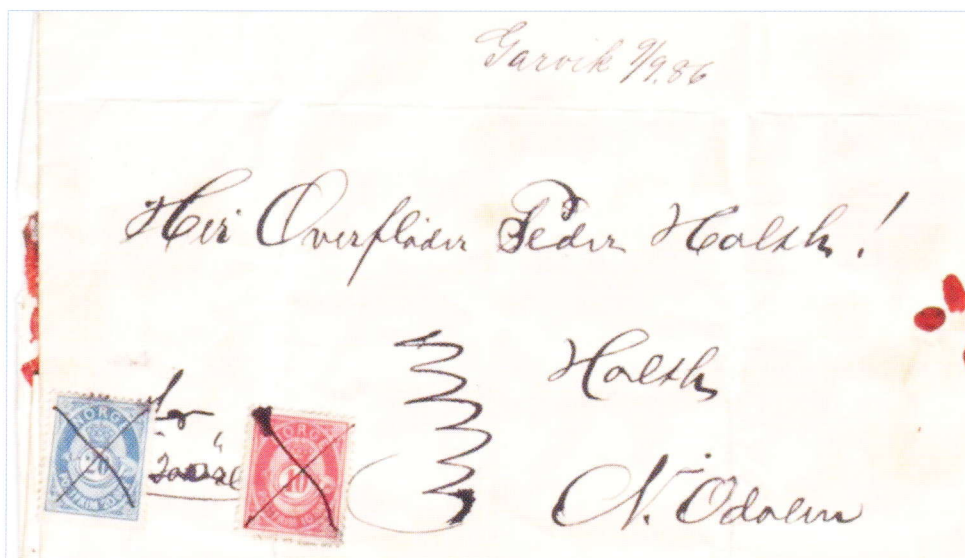 Garvik 9/9.86
Herr Overfløder Peder Holth!
Holth
N. Odalen
NORGE
20
NORGE
10